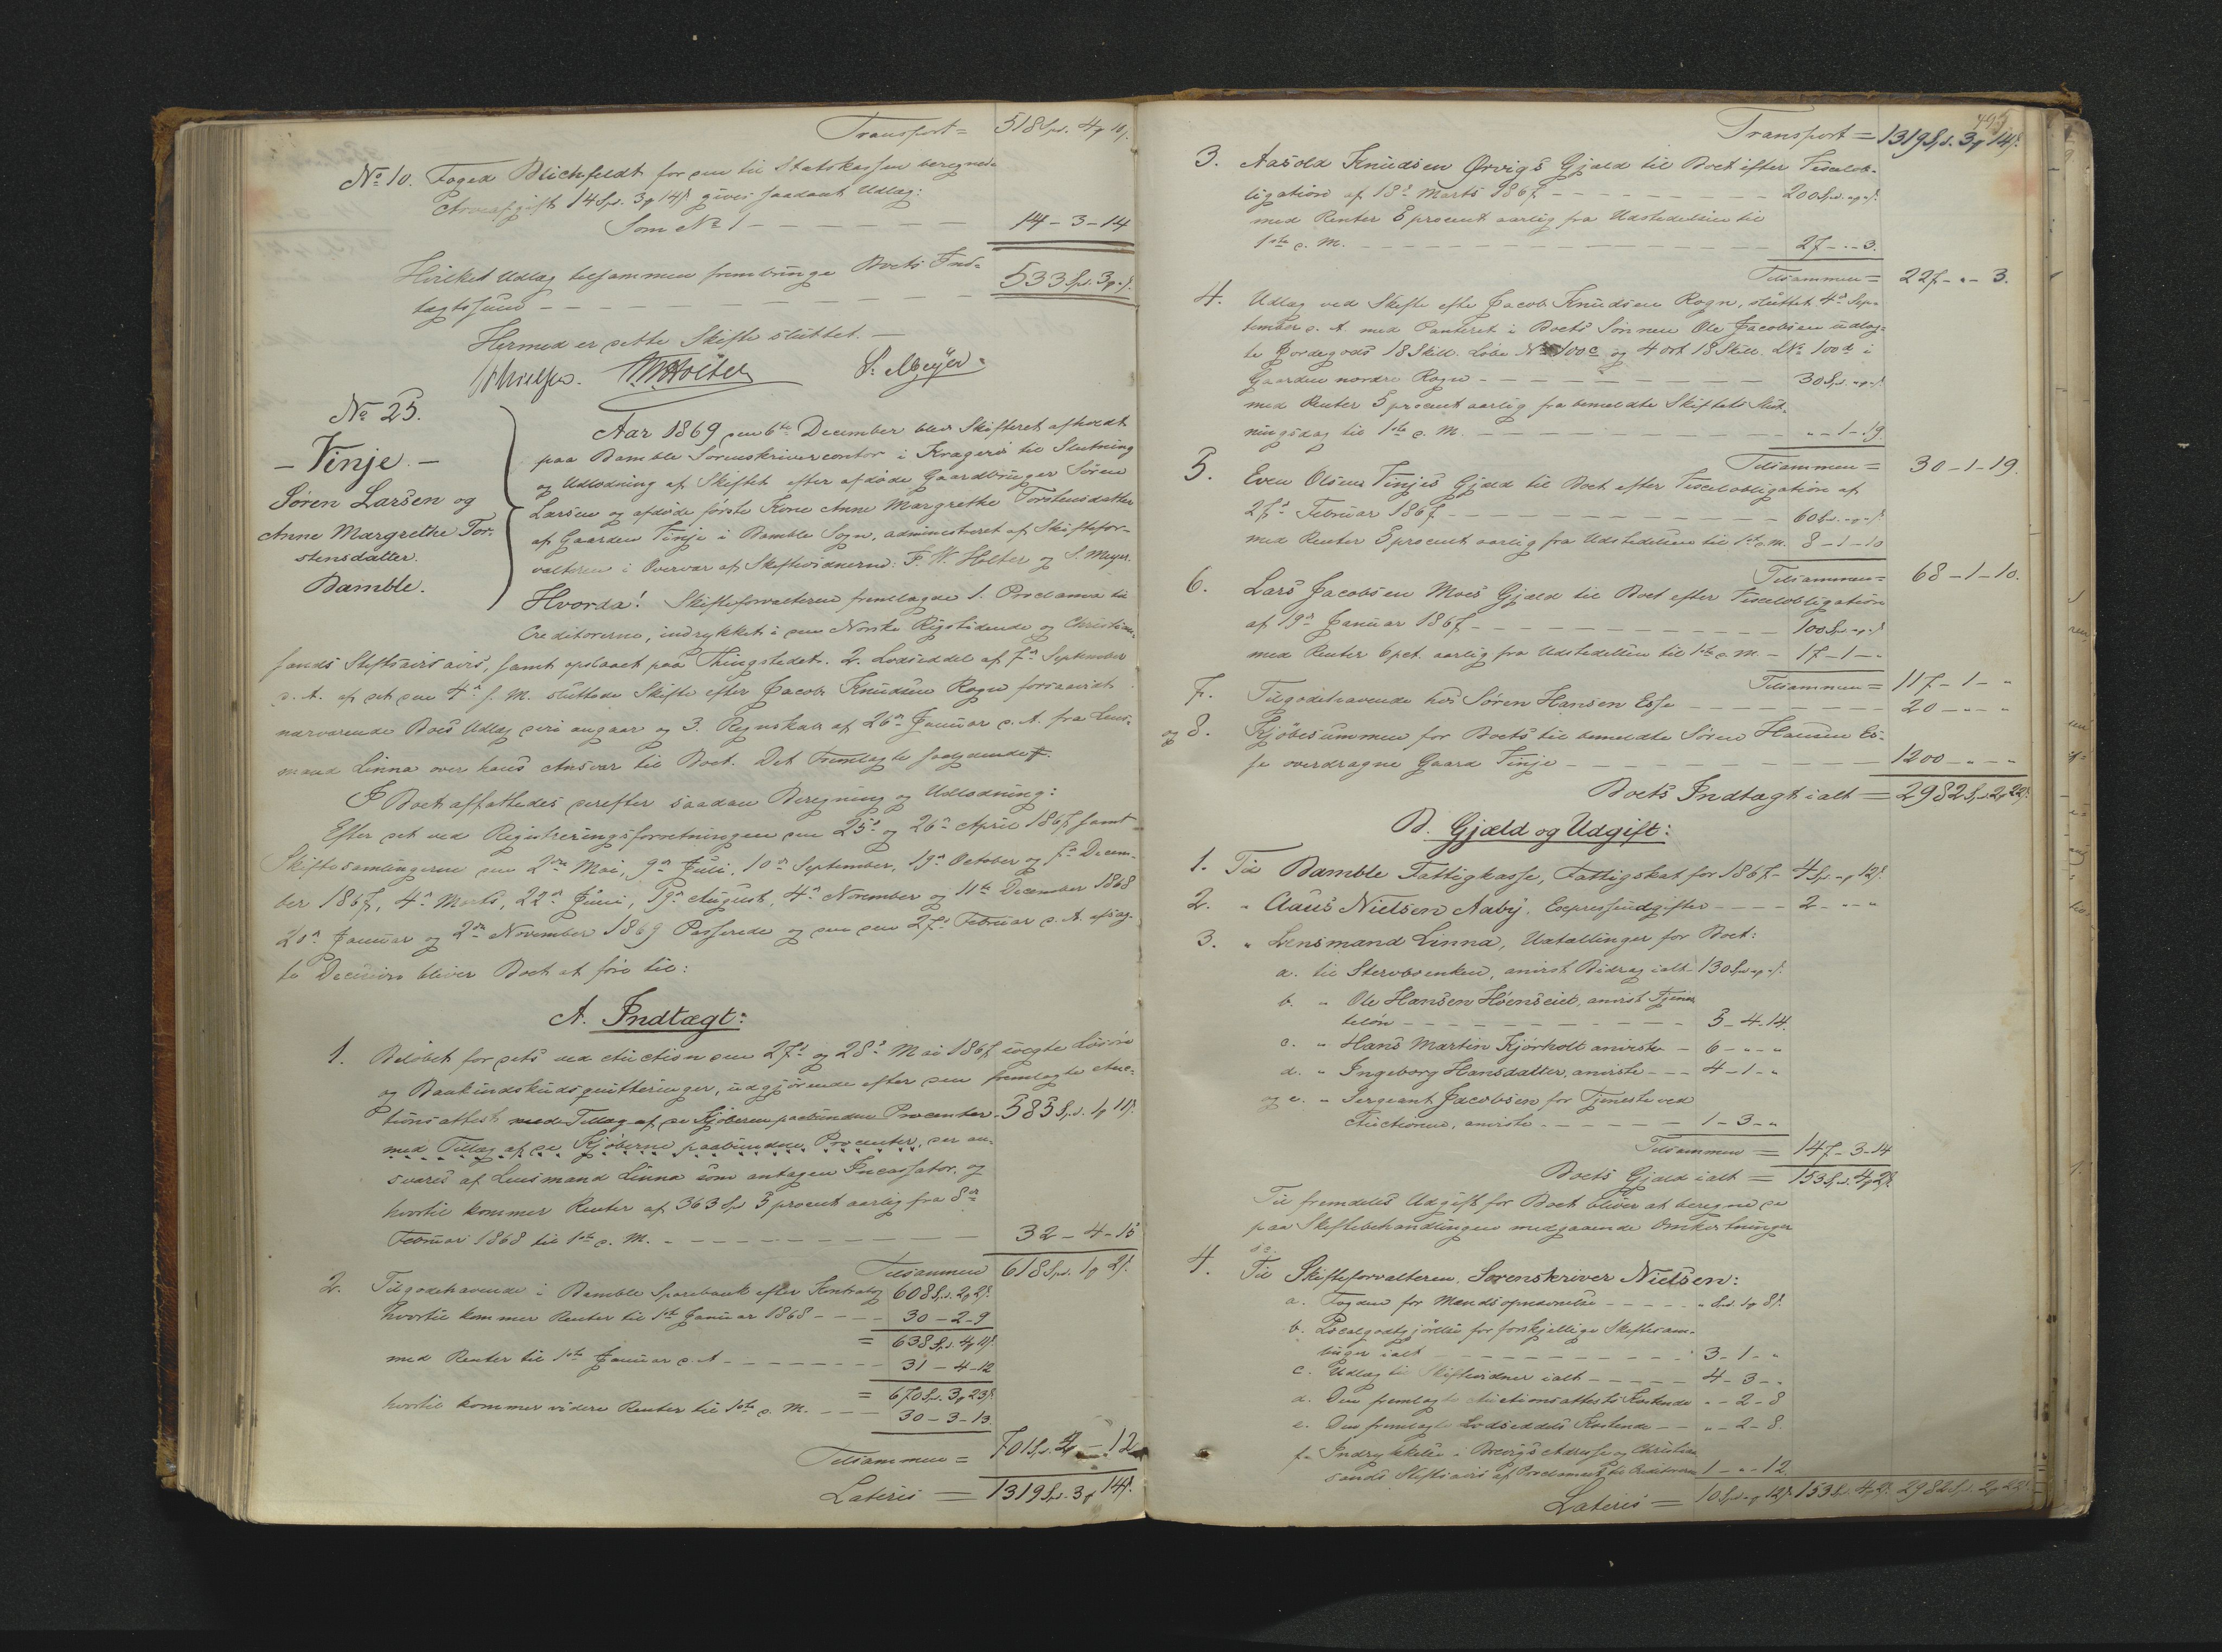 Transport = 518 Spd. 4 10 s.
No 10. Foged Blichfeldt for den til Statskassen beregnede
Arveafgift 14 Spd. 3 14 s gives saadant Udlæg:
Som No 1 - - - - - 14 - 3 - 14
Hvilket Udlæg tilsammen frembringe Boets Ind-
tægtssum - - - 533 Spd. 3 - s.
Hermed er dette Skifte sluttet. -
Nielsen. Holter S. Meyer.
No 25.
- Vinje. -
Søren Larsen og
Anne Margrethe Tor-
stensdatter.
Bamble.
Aar 1869 den 6te December blev Skifteret afholdt
paa Bamble Sorenskrivercontor i Kragerø til Slutning
og Udlodning af Skiftet efter afdøde Gaardbruger Søren
Larsen og afdøde første Kone Anne Margrethe Torstensdatter
af Gaarden Vinje i Bamble Sogn, administreret af Skiftefor-
valteren i Overvær af Skiftevidnerne: F. W. Holter og S. Meyer.
Hvorda! Skifteforvalteren fremlagde 1. Proclama til
Creditorerne, indrykket i den Norske Rigstidende og Christian-
sands Stiftsavis, samt opslaaet paa Thingstedet. 2. Lodseddel af 7de September
d. A. af det den 4de s. M. sluttede Skifte efter Jacob Knudsen Rogn forsaavidt
nærværende Boes Udlæg deri angaar og 3. Regnskab af 26de Januar d. A. fra Lens-
mand Linna over hans Ansvar til Boet. Det Fremlagte saalydende #.
I Boet affattedes derefter saadan Beregning og Udlodning:
Efter det ved Registreringsforretningen den 25de og 26de April 1867 samt
Skiftesamlingerne den 2den Mai, 9de Juli, 10de September, 19de October og 7de Decem-
ber 1867, 4de Marts, 22de Juni, 19de August, 4de November og 11te December 1868
20de Januar og 2den November 1869 Passerede og den den 27de Februar d. A. afsag-
te Decision bliver Boet at føre til:
A. Indtægt:
1. Beløbet for dets ved Auction den 27de og 28de Mai 1867 solgte Løsøre
og Bankindskudsquitteringer, udgjørende efter den fremlagte Auc-
tionsattest med Tillæg af de Kjøberne paabundne Procenter - 585 Spd. 1 11 s.
med Tillæg af de Kjøberne paabundne Procenter, der an-
svares af Lensmand Linna som antagen Incassator, og
hvortil kommer Renter af 363 Spd 5 procent aarlig fra 8de
Februar 1868 til 1ste d. M. - - - - 32 - 4 - 15
Tilsammen 618 Spd. 1 2 s.
2. Tilgodehavende i Bamble Sparebank efter Kontrabog 608 Spd. 2 2 s.
hvortil kommer Renter til 1ste Januar 1868 - - - 30 - 2 - 9
= 638 Spd. 4 11 s.
med Renter til 1ste Januar d. A - - - - 31 - 4 - 12
= 670 Spd. 3 23 s.
hvortil kommer videre Renter til 1ste d. M. - - - 30 - 3 - 13.
Tilsammen = 701 Spd. 2 - 12
Lateris = 1319 Spd. 3 14 s.
Transport = 1319 Spd. 3 14 s.
3. Aasold Knudsen Ørvigs Gjæld til Boet efter Tiscelob-
ligation af 18de Marts 1867 - - - - 200 Spd. - -
med Renter 5 procent aarlig fra Udstedelsen til
1ste d. M. - - - - 27 - " - 3.
Tilsammen = 227 - " - 3.
4. Udlæg ved Skifte efter Jacob Knudsen Rogn, sluttet 4de Sep-
tember d. A. med Panteret i Boets Sønnen Ole Jacobsen udlag-
te Jordegods 18 Skill. Løbe No 100c og 4 ort 18 Skill. LNo 100d i
Gaarden nordre Rogn - - - - 30 Spd. - -
med Renter 5 procent aarlig fra bemeldte Skiftets Slut-
ningsdag til 1ste d. M. - - - - " - 1 - 19
Tilsammen = 30 - 1 - 19.
5. Even Olsens Vinjes Gjæld til Boet efter Tiscelobligation af
27de Februar 1867 - - - - 60 Spd. - -
med Renter 5 procent aarlig fra Udstedelsen til 1ste d. M. 8 - 1 - 10
Tilsammen = 68 - 1 - 10.
6. Lars Jacobsen Moes Gjæld til Boet efter Tiscelobligation
af 19de Januar 1867 - - - - 100 Spd - -
med Renter 6 pct. aarlig fra Udstedelsen til 1ste d. M. - 17 - 1 - "
Tilsammen = 117 - 1 - "
7. Tilgodehavende hos Søren Hansen Esse - - - - 20 - " - "
og 8. Kjøbesummen for Boets til bemeldte Søren Hansen Es-
se overdragne Gaard Vinje - - - - 1200 - " - "
Boets Indtægt ialt = 2982 Spd. 2 22 s.
B. Gjæld og Udgift:
1. Til Bamble Fattigkasse, Fattigskat for 1867 - 4 Spd. - 12 s.
2. " Aaus Nielsen Aaby, Expressudgifter - - - 2 - " - "
3. " Lensmand Linna, Udtællinger for Boet:
a. til Stervboenken, anvist Bidrag ialt - 130 Spd - -
b. " Ole Hansen Høenseiet, anvist Tjenes
teløn - - - - 5 - 4 - 14.
c. " Hans Martin Kjørholt anviste - 6 - " - "
d. " Ingeborg Hansdatter, anviste - - - 4 - 1 - "
og e. " Sergeant Jacobsen for Tjeneste ved
Auctionen, anviste - - - - 1 - 3 - "
Tilsammen = 147 - 3 - 14
Boets Gjæld ialt = 153 Spd. 4 2 s.
Til fremdeles Udgift for Boet bliver at beregne de
paa Skiftebehandlingen medgaaende Omkostninger
4. Til Skifteforvalteren, Sorenskriver Nielsen:
a. Fogden for Mændsopnævnelse - - - - " Spd. 1 8 s.
b. Localgodtgjørelse for forskjellige Skiftesam-
linger ialt - - - - 3 - 1 - "
c. Udlæg til Skiftevidner ialt - - - - 4 - 3 - "
d. Den fremlagte Auctionsattests Kostende " - 2 - 8
e. Den fremlagte Lodseddels Kostende - - " - 2 - 8.
f. Indrykkelse i Brevigs Adresse og Christian
sands Stiftsavis af Proclamaet til Creditorerne 1 - " - 12.
Lateris = 10 Spd. - 12 s. 153 Spd. 4 2 s. 2982 Spd. 2 22 s.